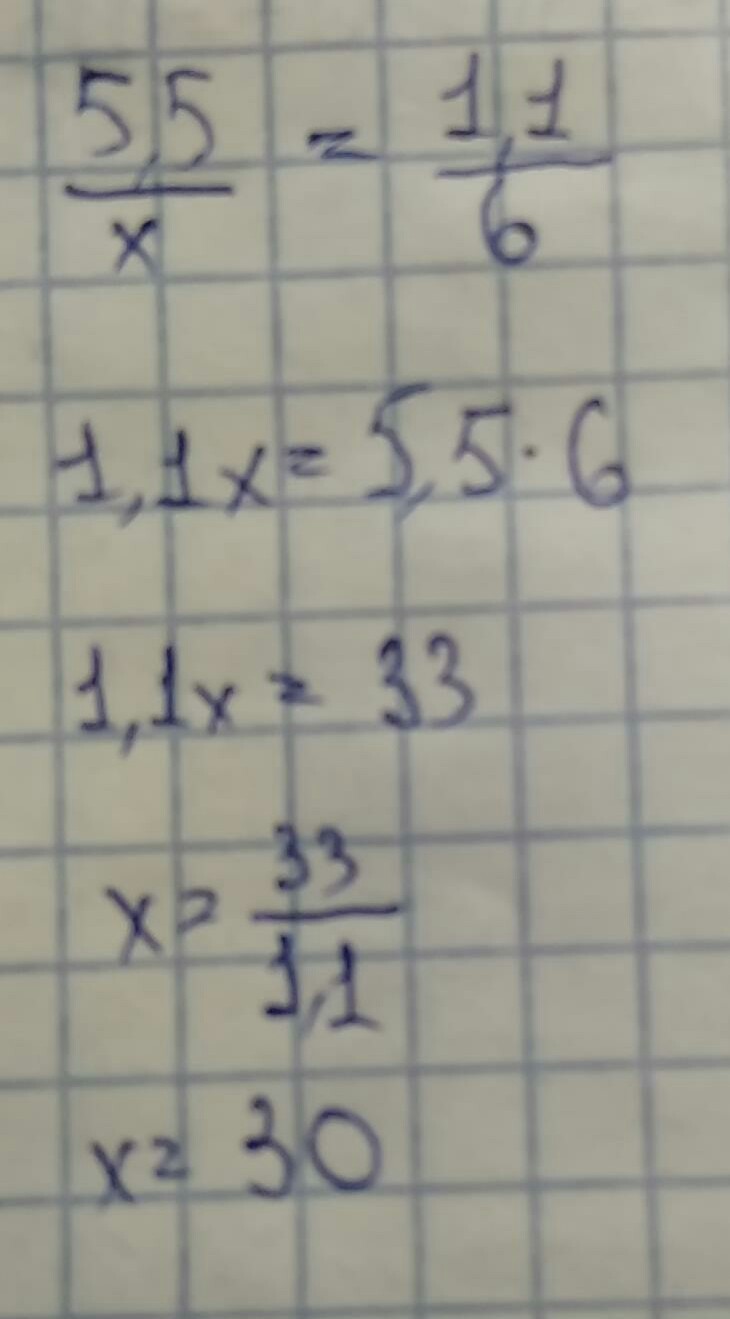 5,5/x = 1,1/6
1,1x = 5,5 · 6
1,1x = 33
x = 33/1,1
x = 30